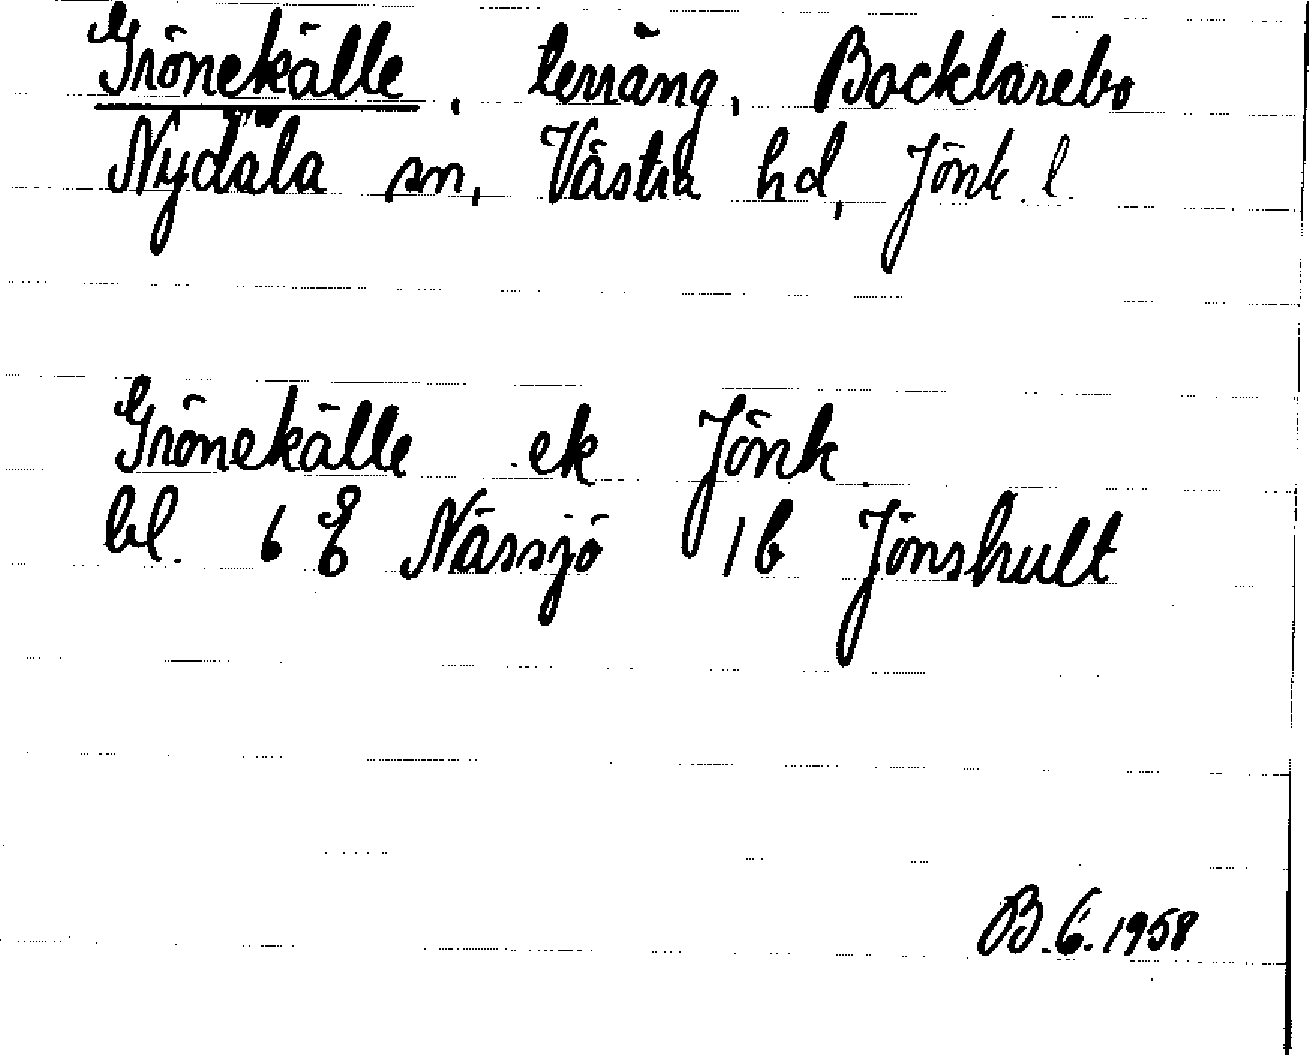 Grönekälle, terräng, Bocklarebo
Nydala sn, Västra hd, Jönk. l.
Grönekälle ek Jönk
bl. 6 E Nässjö 1 b Jönshult
B.G. 1958